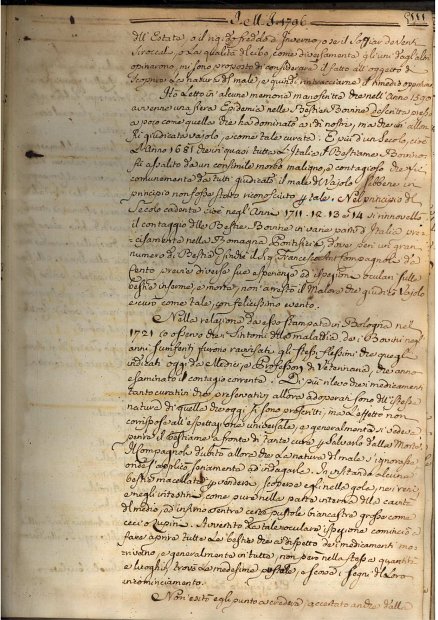 J. M. J. 1796
dell'Estate, o il rigido freddo d'Inverno, o se il soffiar de Venti
Siroccali, o la qualità del cibo, come diversamente gli uni dagli altri
opinarono, mi sono proposto di considerare il fatto all'oggetto di
scoprire la natura del male, e quindi rintracciarne il rimedio opportuno
Ho letto in alcune memorie manoscritte che nell'Anno 1590
avvenne una fiera Epidemia nelle Bestie Bovine descritta presso
a poco come quella che ha dominato a dì nostri, ma che in allora
fu giudicata vajolo, e come tale curata. È più d'un Secolo, cioè
l'Anno 1681 che in quasi tutta l'Italia il Bestiame Bovino
fu assalito da un consimile morbo maligno, e contagioso che fù
comunemente da tutti giudicato il male di Vajolo sebbene in
principio non fosse stato riconosciuto per tale. Nel principio del
Secolo cadente cioè negl'Anni 1711. 12. 13 e 14 si rinnovellò
il contaggio delle Bestie Bovine in varie parti d'Italia pre-
cisamente nella Romagna Pontificia, dove perì un gran
numero di Bestie, quindi il Sig. Francesco Ant. Compagnoli da
Cento previe diverse sue esperienze ed ispezioni oculari sulle
bestie inferme, e morte, non arrestò il Malore che giudicò Vajolo
e curò come tale con felicissimo evento.
Nella relazione da esso stampata in Bologna nel
1721 io osservo che i Sintomi della maladia de' Bovini negl'
anni sunnotati furono ravvisati gli stessi stessissimi che quegli
indicati oggi da Medici, e Professori di Veterinaria, che hanno
esaminato il contagio corrente. Di più rilevo che i medicamenti
tanto curativi che preservativi allora adoperati sono dell'istessa
natura di quelli che oggi si sono prescritti, ma l'effetto non
corrispose all'espettazione universale, e generalmente si vedeva
perire il bestiame a fronte di tante cure per salvarlo dalla Morte.
Il Compagnoli dubitò allora che la natura del male s'ignorasse
onde si applicò seriamente ad indagarla. In fatti ad alcune
bestie macellate per vendersi, scoperse egli nelle gola, nei reni,
e negl'intestini come pure nella parte interna della cavità
del medio, ad infimo ventre certe pustole biancastre grosse come
ceci o Lupini. Avvertito da tale oculare ispezione cominciò a
fare aprire tutte le bestie che a dispetto de' medicamenti mo-
rivano, e generalmente in tutte, non però nella stessa quantità
e luoghi, trovò le medesime pustole, e scorse i segni di loro
incominciamento.
Non esitò egli punto a credere, accertato anche dalla